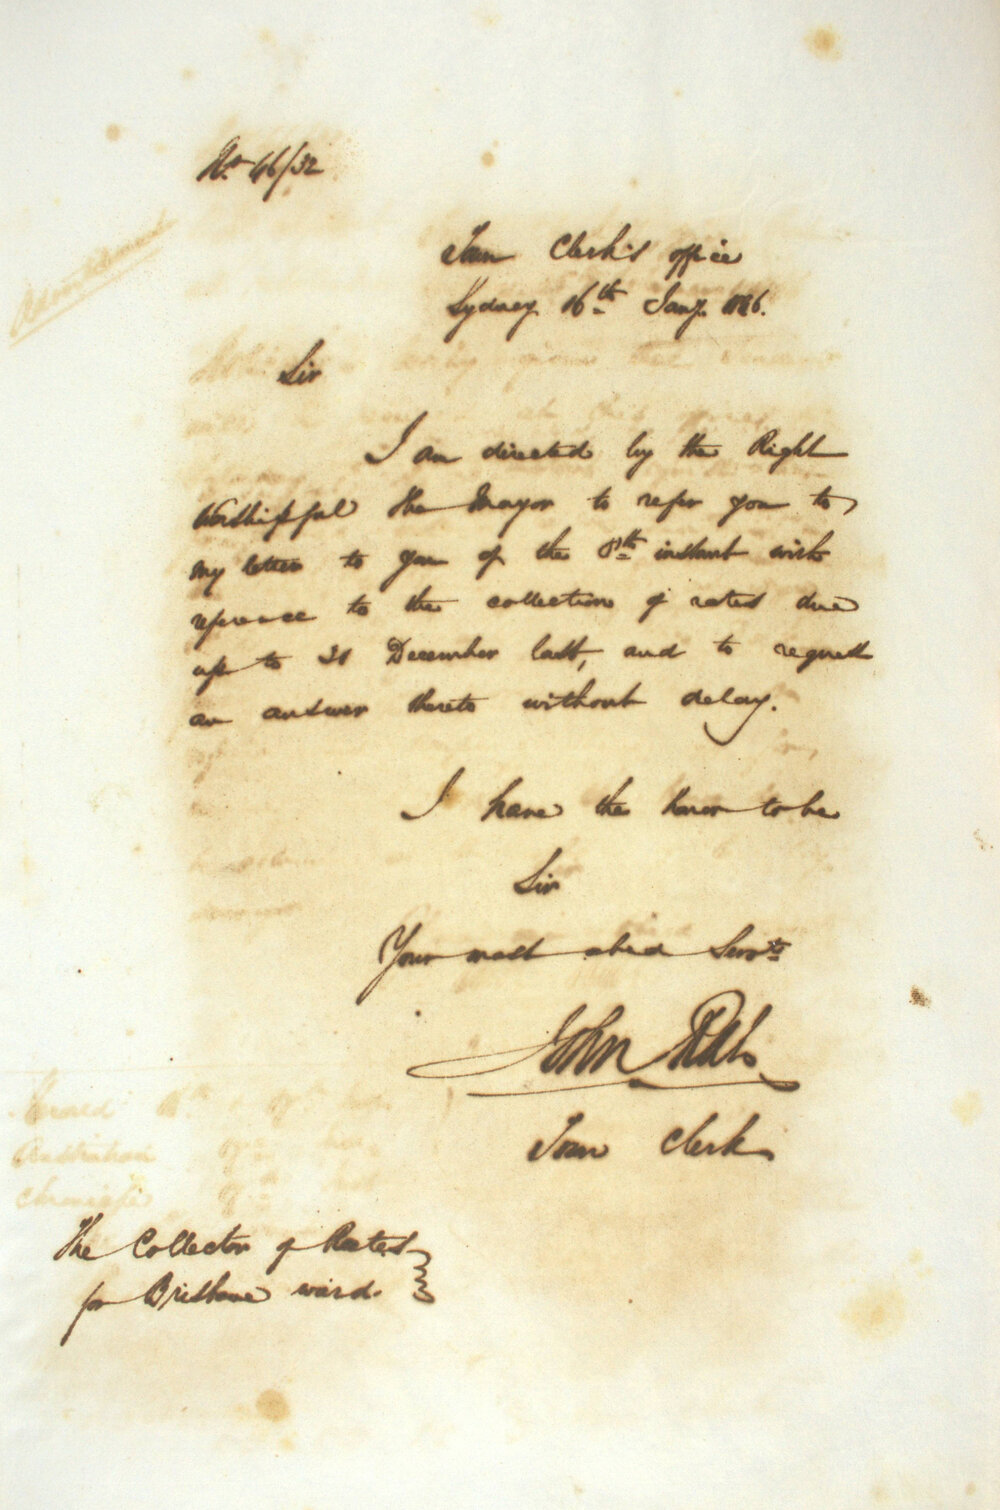 No. 46/32
Town Clerk's office
Sydney 16th Jany. 1846.
Sir
I am directed by the Right
Worshipful the Mayor to refer you to
my letter to you of the 8th instant with
reference to the collection of rates due
up to 31 December last, and to request
an answer thereto without delay.
I have the honor to be
Sir
Your most obed Servt
John
Town Clerk
The Collector of Rates
for Brisbane ward.